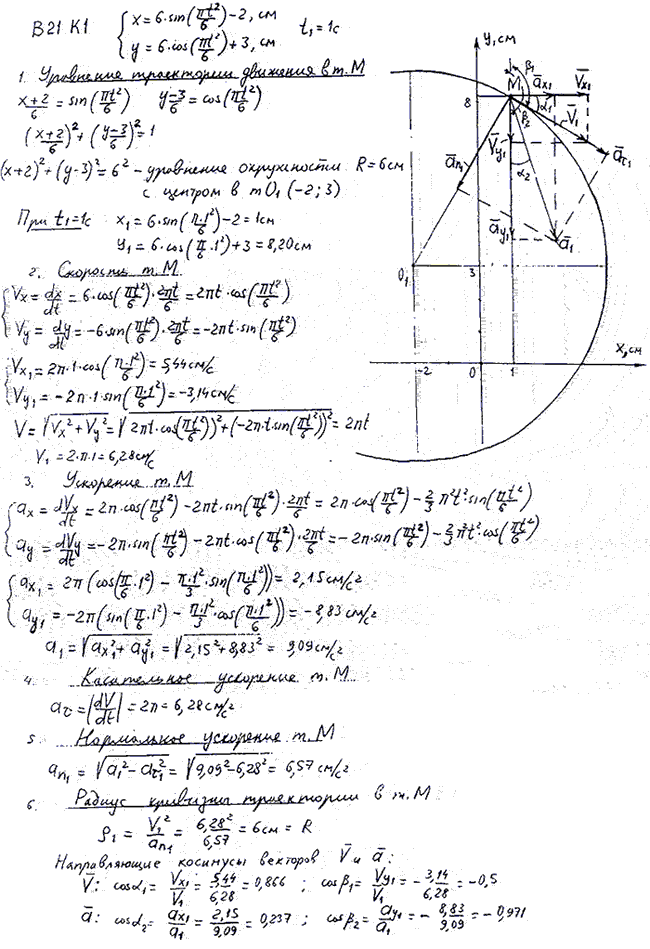 В21 К1 { x = 6·sin(πt²/6) − 2, см t₁ = 1c
y = 6·cos(πt²/6) + 3, см
1. Уровнение троектории движения в т.М
x+2/6 = sin(πt²/6) y−3/6 = cos(πt²/6)
(x+2/6)² + (y−3/6)² = 1
(x+2)² + (y−3)² = 6² – уровнение окружности R = 6см
с центром в т O₁ (−2; 3)
При t₁ = 1c x₁ = 6·sin(π·1²/6) − 2 = 1см
y₁ = 6·cos(π/6·1²) + 3 = 8,20см
2. Скорость т.М
{ Vx = dx/dt = 6·cos(πt²/6)·2πt/6 = 2πt·cos(πt²/6)
Vy = dy/dt = −6sin(πt²/6)·2πt/6 = −2πt·sin(πt²/6)
{ Vx₁ = 2π·1·cos(π·1²/6) = 5,44 см/с
Vy₁ = −2π·1·sin(π·1²/6) = −3,14 см/с
V = √(Vx² + Vy²) = √((2πt·cos(πt²/6))² + (−2π·t·sin(πt²/6))²) = 2πt
V₁ = 2·π·1 = 6,28 см/с
3. Ускорение т.М
{ ax = dVx/dt = 2π·cos(πt²/6) − 2πt·sin(πt²/6)·2πt/6 = 2π·cos(πt²/6) − 2/3 π²t²·sin(πt²/6)
ay = dVy/dt = −2π·sin(πt²/6) − 2πt·cos(πt²/6)·2πt/6 = −2π·sin(πt²/6) − 2/3 π²t²·cos(πt²/6)
{ ax₁ = 2π(cos(π/6·1²) − π·1²/3·sin(π·1²/6)) = 2,15 см/с²
ay₁ = −2π(sin(π/6·1²) − π·1²/3·cos(π·1²/6)) = −8,83 см/с²
a₁ = √(ax₁² + ay₁²) = √(2,15² + 8,83²) = 9,09 см/с²
4. Касательное ускорение т.М
aτ = |dV/dt| = 2π = 6,28 см/с²
5. Нормальное ускорение т.М
an₁ = √(a₁² − aτ₁²) = √(9,09² − 6,28²) = 6,57 см/с²
6. Радиус кривизны троектории в т.М
ρ₁ = V₁²/an₁ = 6,28²/6,57 = 6см = R
Направляющие косинусы векторов V̄ и ā:
V̄: cosα₁ = Vx₁/V₁ = 5,44/6,28 = 0,866 ; cosβ₁ = Vy₁/V₁ = −3,14/6,28 = −0,5
ā: cosα₂ = ax₁/a₁ = 2,15/9,09 = 0,237 ; cosβ₂ = ay₁/a₁ = −8,83/9,09 = −0,971
y, см
β₁
M
āx₁
V̄x₁
8
α₁
β₂
V̄₁
V̄y₁
āτ₁
ān₁
α₂
āy₁
ā₁
O₁
3
x, см
−2
0
1